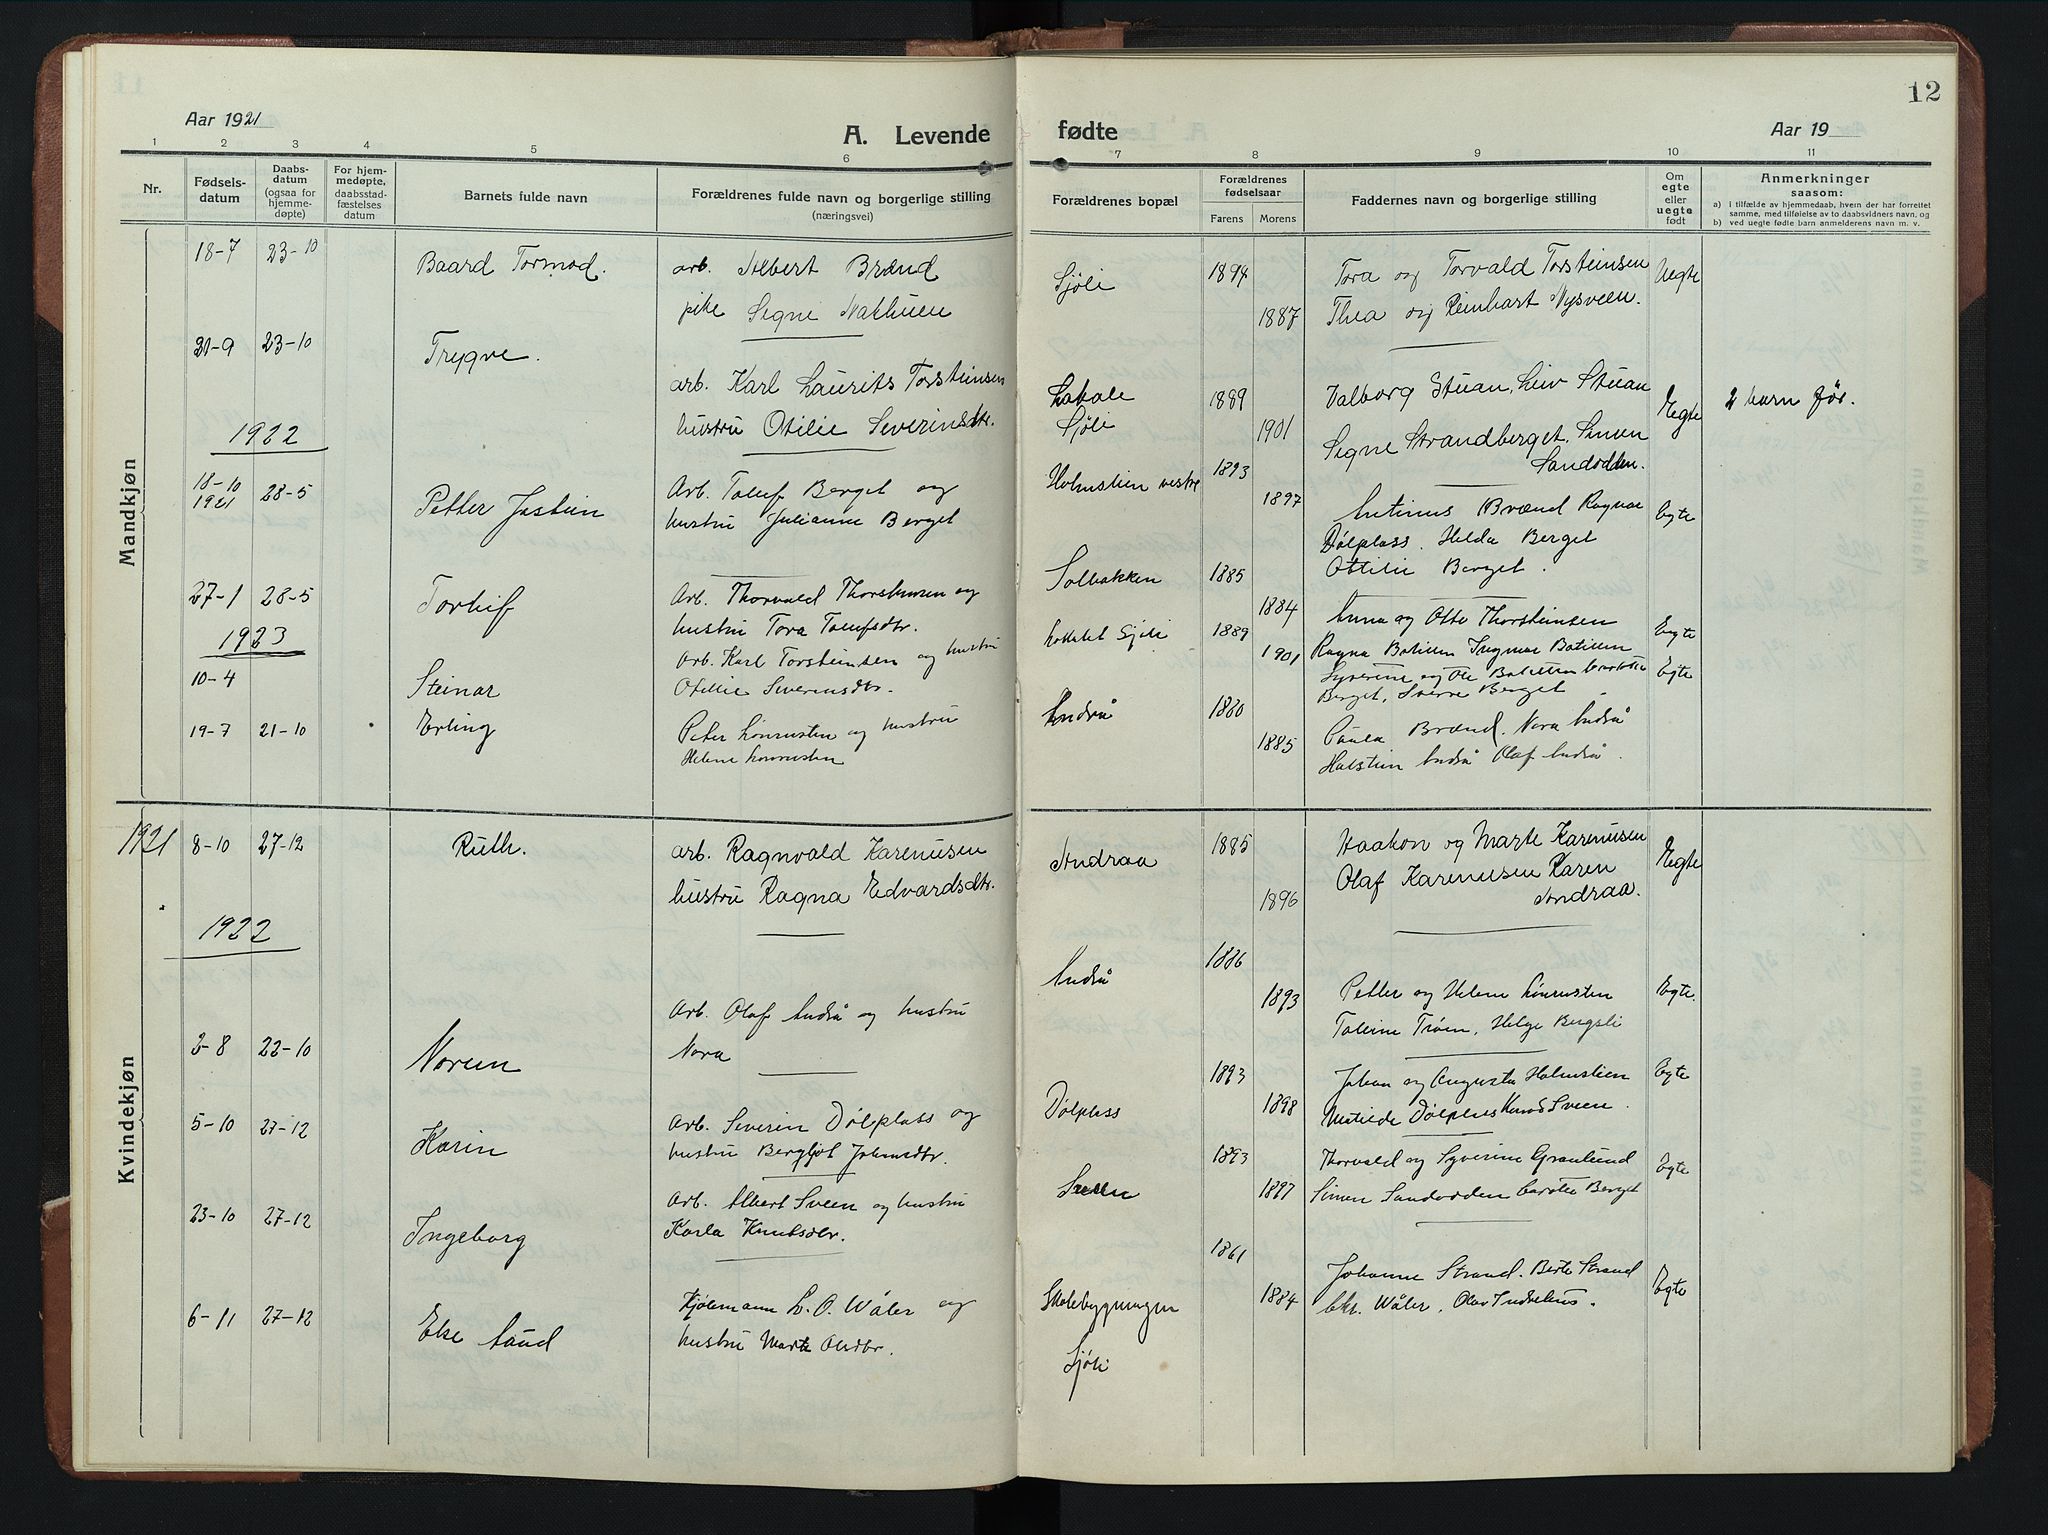 12
Aar 1921
A. Levende
fødte
Aar 19
1 2 3 4 5 6 7 8 9 10 11
Nr.
Fødsels-
datum
Daabs-
datum
(ogsaa for
hjemme-
døpte)
For hjem-
medøpte,
daabsstad-
fæstelses
datum
Barnets fulde navn
Forældrenes fulde navn og borgerlige stilling
(næringsvei)
Forældrenes bopæl
Forældrenes
fødselsaar
Farens Morens
Faddernes navn og borgerlige stilling
Om
egte
eller
uegte
født
Anmerkninger
saasom:
a) i tilfælde av hjemmedaab, hvem der har forrettet
samme, med tilføielse av to daabsvidners navn, og
b) ved uegte fødte barn anmelderens navn m. v.
Mandkjøn
18-7 23-10 Baard Tormod. arb. Albert Brænd
pike Segne
Sjöli 1894 1887
Tora og Torvald Torsteinsen
Thea og Reinhart Nysveen.
Uegte
21-9 23-10 Trygve.
arb. Karl Laurits Torsteinsen
hustru Otilie Severinsdtr.
Sjöli 1889 1901
Valborg Stuan, Leiv Stuan
Segne Strandberget. Simen
Sandodden.
Egte
2 barn før.
1922
18-10
1921 28-5 Petter Jostein
Arb. Toluf Berget og
hustru Julianne Berget
Holmstien vestre 1893 1897
Antinus Brænd Ragna
Dölplass. Helda Berget
Ottilie Berget.
Egte
27-1 28-5 Torleif
Arb. Thorvald Thorsteinsen og
hustru Tora Tolufsdtr.
Solbakken 1885 1884
Anna og Otto Thorsteinsen
Egte
1923
10-4 Steinar
Arb. Karl Torsteinsen og hustru
Otellie Severinsdtr.
Sjöli 1889 1901
Ragna Botillen Ingmar Botillen
Syverine og Ole Botillen
Berget, Sverre Berget
Egte
19-7 21-10 Erling
Peter Lönrusten og hustru
Helene Lönrusten
Andrå 1880 1885
Paula Brænd. Nora Andrå
Halstein Andrå Olaf Andrå.
Kvindekjøn
1921
8-10 27-12 Ruth.
arb. Ragnvald Karenusen
hustru Ragna Edvardsdtr.
Andraa 1885 1896
Haakon og Marte Karenusen
Olaf Karenusen Karen
Andraa.
Egte
1922
2-8 22-10 Noreen
Arb. Olaf Andrå og hustru
Nora
Andrå 1886 1893
Petter og Helene Lönrusten
Tolerine Tröen, Helge Bergsli
Egte.
5-10 27-12 Karin
Arb. Severin Dölplass og
hustru Bergljot Johansdtr.
Dölplass 1893 1898
Johan og Augusta Holmstien
Matilde Dölplass Knud Sveen.
Egte
23-10 27-12 Ingeborg
Arb. Albert Sveen og hustru
Karla Knutsdtr.
Sveen 1893 1897
Thorvald og Syverine Granlund
Simen Sandodden Berget
Egte
6-11 27-12 Else Aaud
Kjölemann L. O. Wåler og
hustru Marte Olsdtr.
Skolebygningen
Sjöli
1861 1884
Johanne Strand. Berte Strand
Chr. Wåler, Olav
Egte